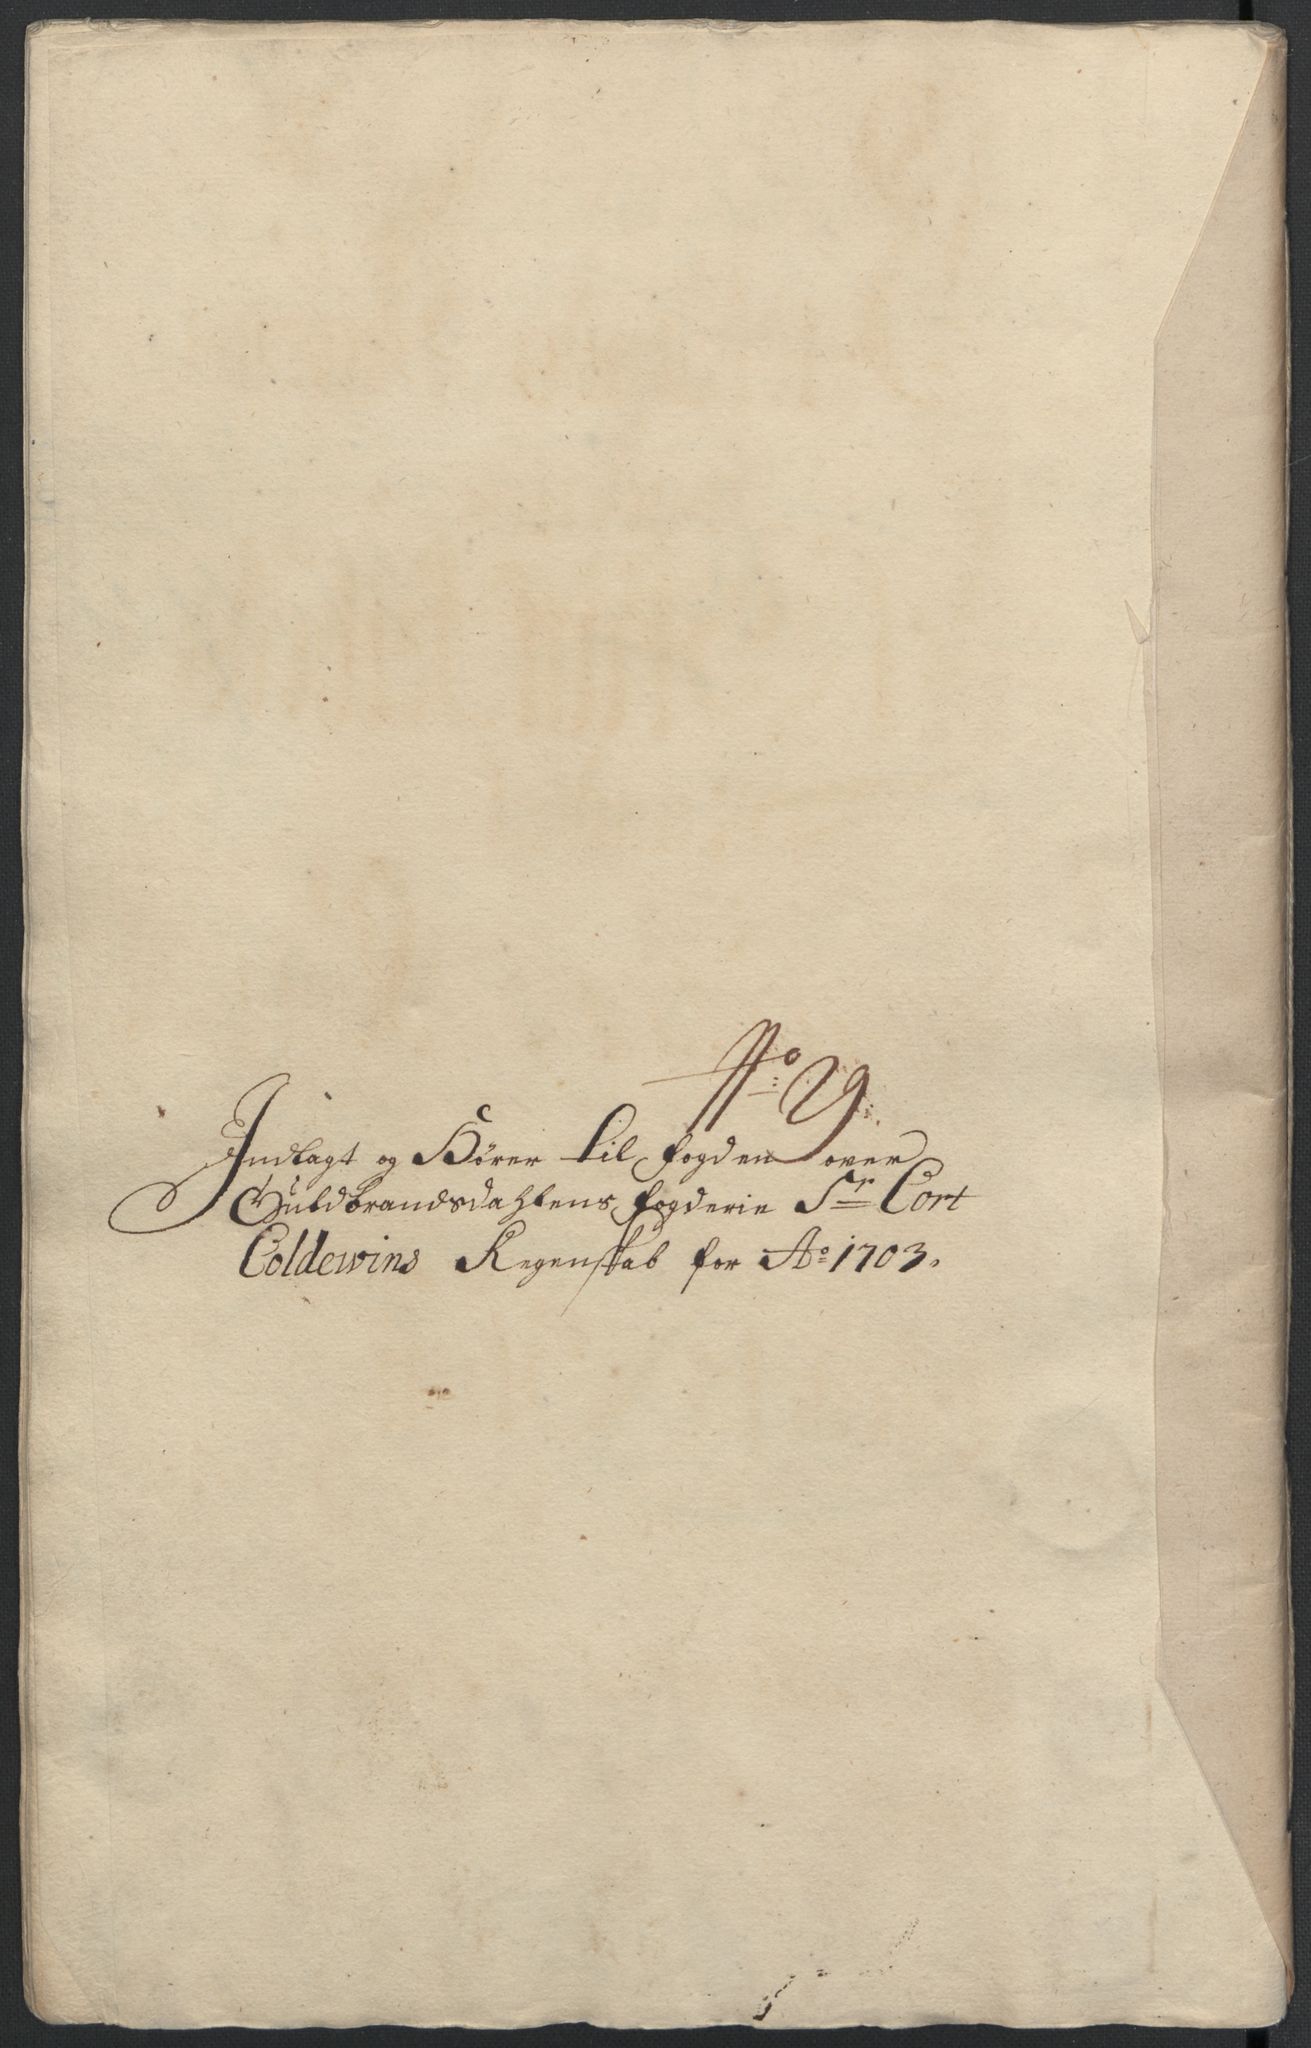 No 9.
Indlagt og Hører til fogden over
Guldbrandsdahlens fogderie Sr Cort
Coldewins Regenskab for Ao 1703.